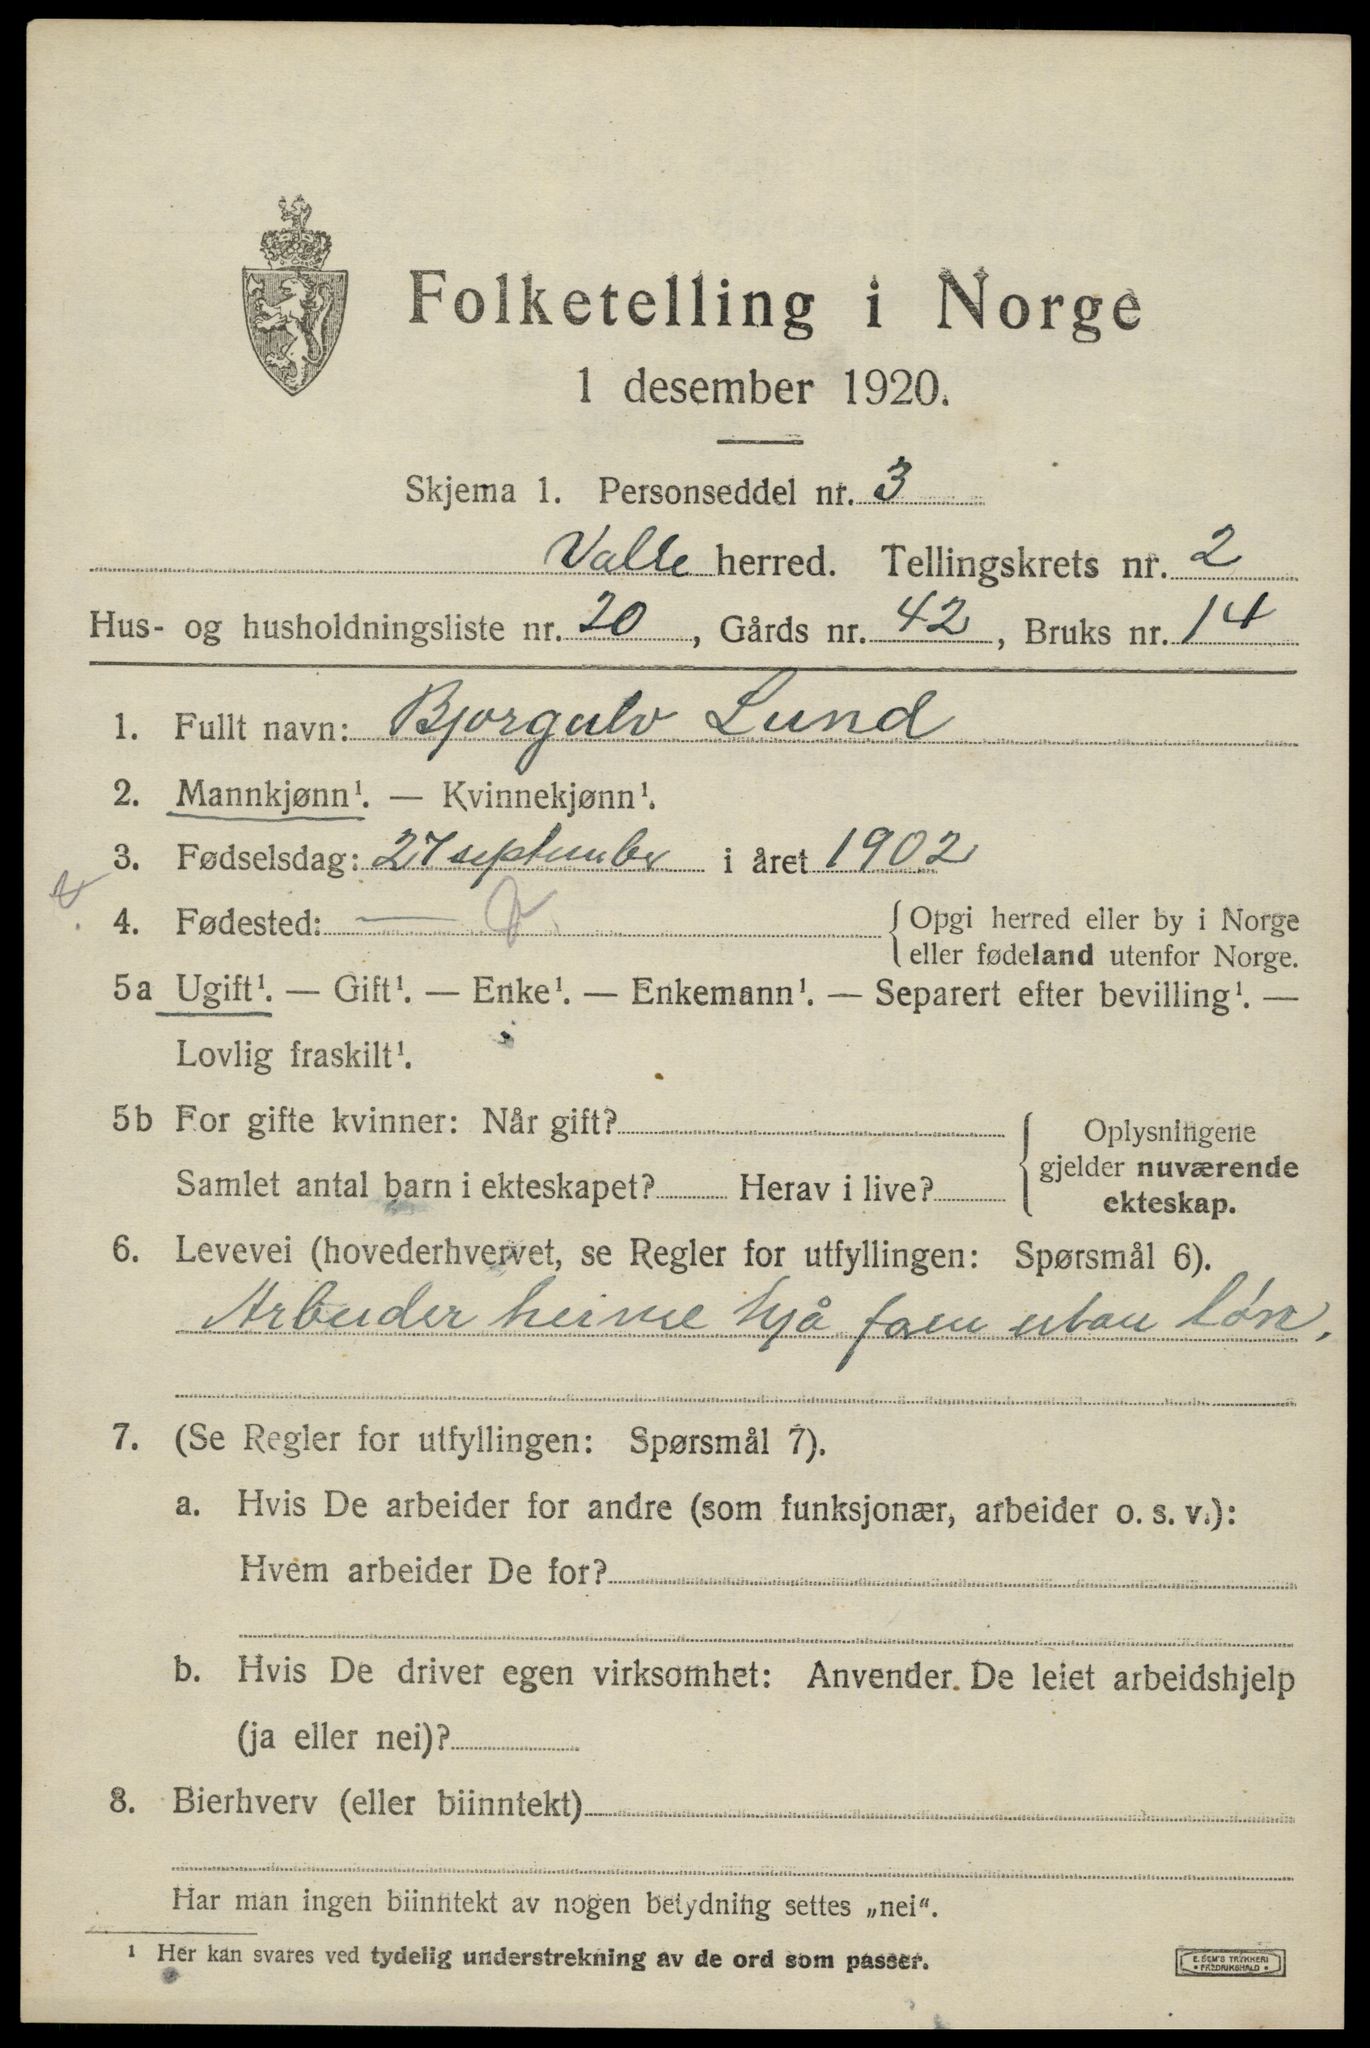 Folketelling i Norge
1 desember 1920.
Skjema 1. Personseddel nr. 3
Valle herred. Tellingskrets nr. 2
Hus- og husholdningsliste nr. 20, Gårds nr. 42, Bruks nr. 14
1. Fullt navn: Bjorgulv Lund
2. Mannkjønn¹. — Kvinnekjønn¹.
3. Fødselsdag: 27 september i året 1902
4. Fødested: — { Opgi herred eller by i Norge
eller fødeland utenfor Norge.
5a Ugift¹. — Gift¹. — Enke¹. — Enkemann¹. — Separert efter bevilling¹. —
Lovlig fraskilt¹.
5b For gifte kvinner: Når gift?
Samlet antal barn i ekteskapet? Herav i live?
{ Oplysningene
gjelder nuværende
ekteskap.
6. Levevei (hovederhvervet, se Regler for utfyllingen: Spørsmål 6).
Arbeider heime hjå faren utan løn.
7. (Se Regler for utfyllingen: Spørsmål 7).
a. Hvis De arbeider for andre (som funksjonær, arbeider o. s. v.):
Hvem arbeider De for?
b. Hvis De driver egen virksomhet: Anvender De leiet arbeidshjelp
(ja eller nei)?
8. Bierhverv (eller biinntekt)
Har man ingen biinntekt av nogen betydning settes „nei“.
¹ Her kan svares ved tydelig understrekning av de ord som passer.
E. SEM'S TRYKKERI
• FREDRIKSHALD •